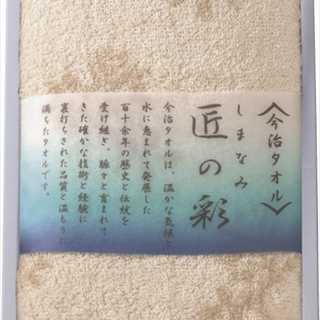 〈今治タオル〉
しまなみ
匠の彩
今治タオルは、温かな気候と
水に恵まれて発展した
百十余年の歴史と伝統を
受け継ぎ、脈々と育まれて
きた確かな技術と経験に
裏打ちされた品質と温もりに
満ちたタオルです。